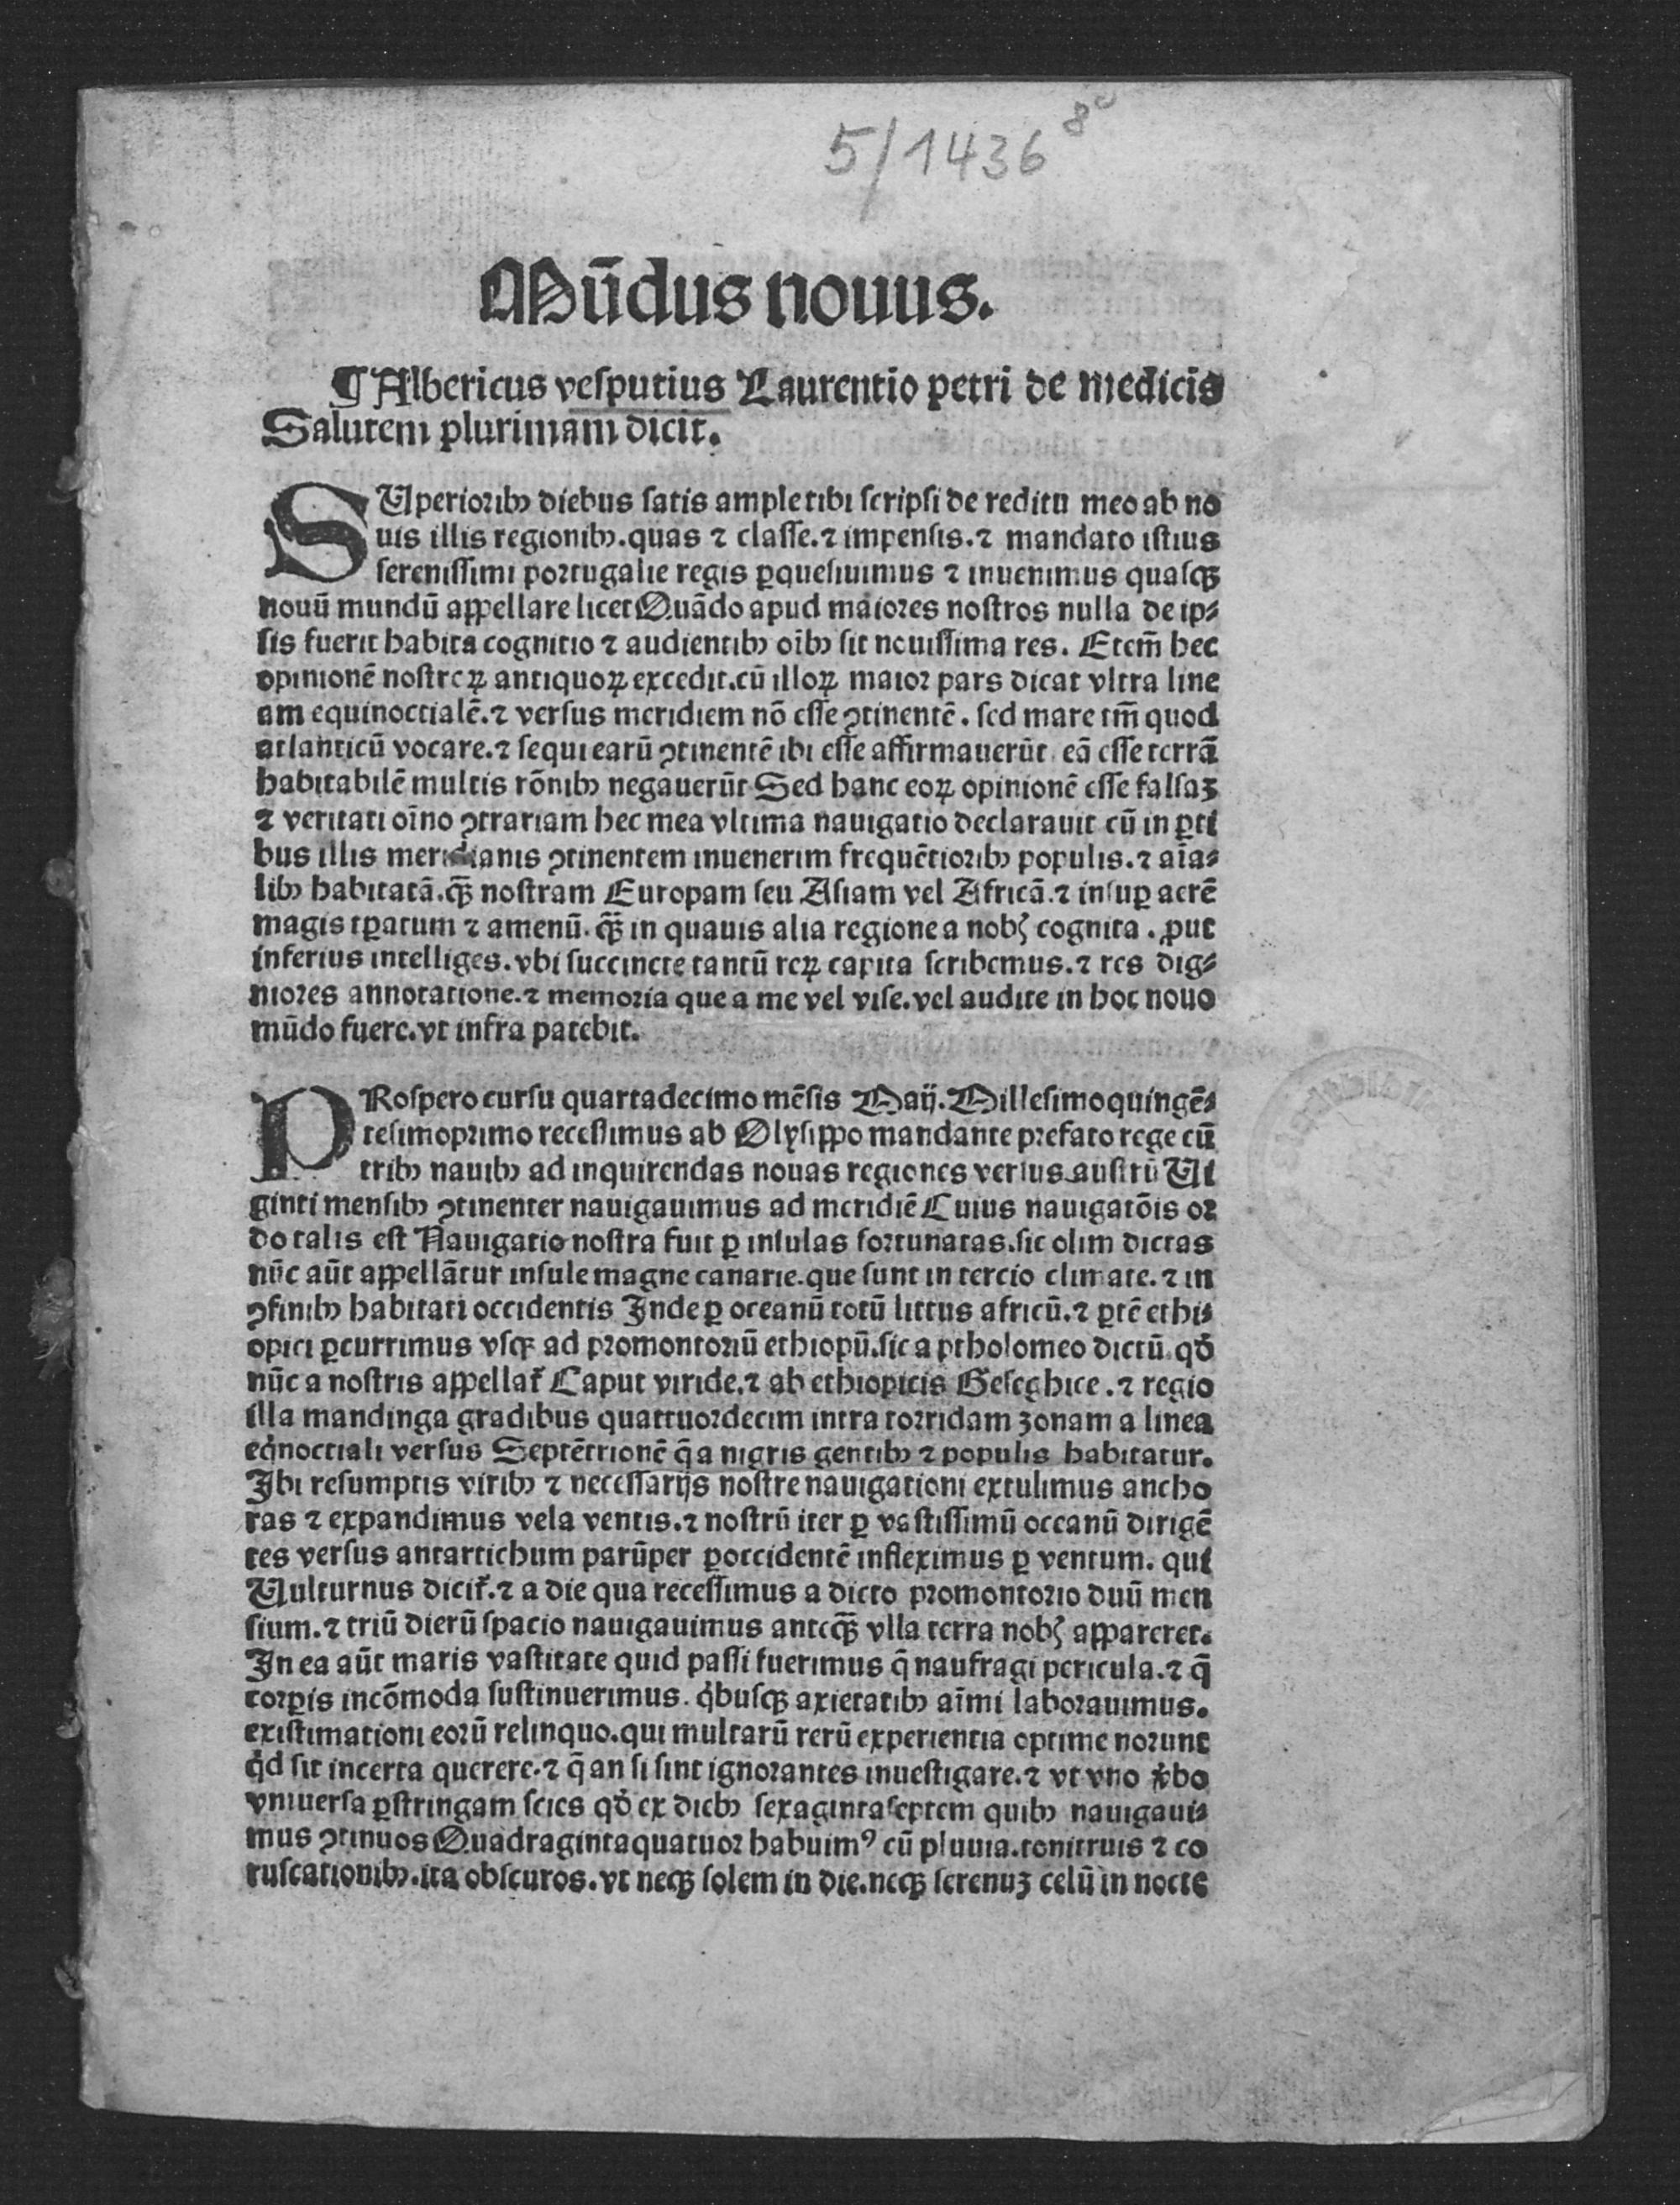 5/1436 8°
Mūdus nouus.
¶ Albericus vesputius Laurentio petri de medicis
Salutem plurimam dicit.
SUperioribꝫ diebus satis ample tibi scripsi de reditu meo ab no
uis illis regionibꝫ. quas ⁊ classe. ⁊ impensis. ⁊ mandato istius
serenissimi portugalie regis ꝑquesiuimus ⁊ inuenimus quasqꝫ
nouū mundū appellare licet Quādo apud maiores nostros nulla de ip⸗
sis fuerit habita cognitio ⁊ audientibꝫ oībꝫ sit nouissima res. Etem̄ hec
opinionē nostroꝝ antiquoꝝ excedit. cū illoꝝ maior pars dicat vltra line
am equinoctialē. ⁊ versus meridiem nō esse ꝯtinentē. sed mare tm̄ quod
atlanticū vocare. ⁊ sequi earū ꝯtinentē ibi esse affirmauerūt eā esse terrā
habitabilē multis rōnibꝫ negauerūt Sed hanc eoꝝ opinionē esse falsaʒ
⁊ veritati oīno ꝯtrariam hec mea vltima nauigatio declarauit cū in ꝑti
bus illis meridianis ꝯtinentem inuenerim frequētioribꝫ populis. ⁊ aīa⸗
libꝫ habitatā. qꝫ̄ nostram Europam seu Asiam vel Africā. ⁊ insuꝑ aerē
magis tꝑatum ⁊ amenū. qꝫ̄ in quauis alia regione a nobꝭ cognita. ꝓut
inferius intelliges. vbi succincte tantū reꝝ capita scribemus. ⁊ res dig⸗
niores annotatione. ⁊ memoria que a me vel vise. vel audite in hoc nouo
mūdo fuere. vt infra patebit.
PRospero cursu quartadecimo mēsis Maij. Millesimoquingē⸗
tesimoprimo recessimus ab Olysippo mandante prefato rege cū
tribꝫ nauibꝫ ad inquirendas nouas regiones versus austrū Ui
ginti mensibꝫ ꝯtinenter nauigauimus ad meridiē Cuius nauigatōis or
do talis est Nauigatio nostra fuit ꝑ insulas fortunatas. sic olim dictas
nūc aūt appellātur insule magne canarie. que sunt in tercio climate. ⁊ in
ꝯfinibꝫ habitati occidentis Inde ꝑ oceanū totū littus africū. ⁊ ꝑtē ethi⸗
opici ꝑcurrimus vsqꝫ ad promontoriū ethiopū. sic a ptholomeo dictū. qđ
nūc a nostris appellat᷑ Caput viride. ⁊ ab ethiopicis Beseghice. ⁊ regio
illa mandinga gradibus quattuordecim intra torridam zonam a linea
eqͥnoctiali versus Septētrionē q̄ a nigris gentibꝫ ⁊ populis habitatur.
Ibi resumptis viribꝫ ⁊ necessarijs nostre nauigationi extulimus ancho
ras ⁊ expandimus vela ventis. ⁊ nostrū iter ꝑ vastissimū oceanū dirigē
tes versus antartichum parūper ꝑoccidentē infleximus ꝑ ventum. qui
Uulturnus dicit᷑. ⁊ a die qua recessimus a dicto promontorio duū men
sium. ⁊ triū dierū spacio nauigauimus anteqꝫ̄ vlla terra nobꝭ appareret.
In ea aūt maris vastitate quid passi fuerimus q̄ naufragi pericula. ⁊ q̄
corꝑis incōmoda sustinuerimus. qͥbusqꝫ axietatibꝫ aīmi laborauimus.
existimationi eorū relinquo. qui multarū rerū experientia optime norunt
qͥd sit incerta querere. ⁊ q̄ an si sint ignorantes inuestigare. ⁊ vt vno ꝟbo
vniuersa ꝑstringam scies qđ ex diebꝫ sexagintaseptem quibꝫ nauigaui⸗
mus ꝯtinuos Quadragintaquatuor habuimꝰ cū pluuia. tonitruis ⁊ co
ruscationibꝫ. ita obscuros. vt neqꝫ solem in die. neqꝫ serenuʒ celū in nocte